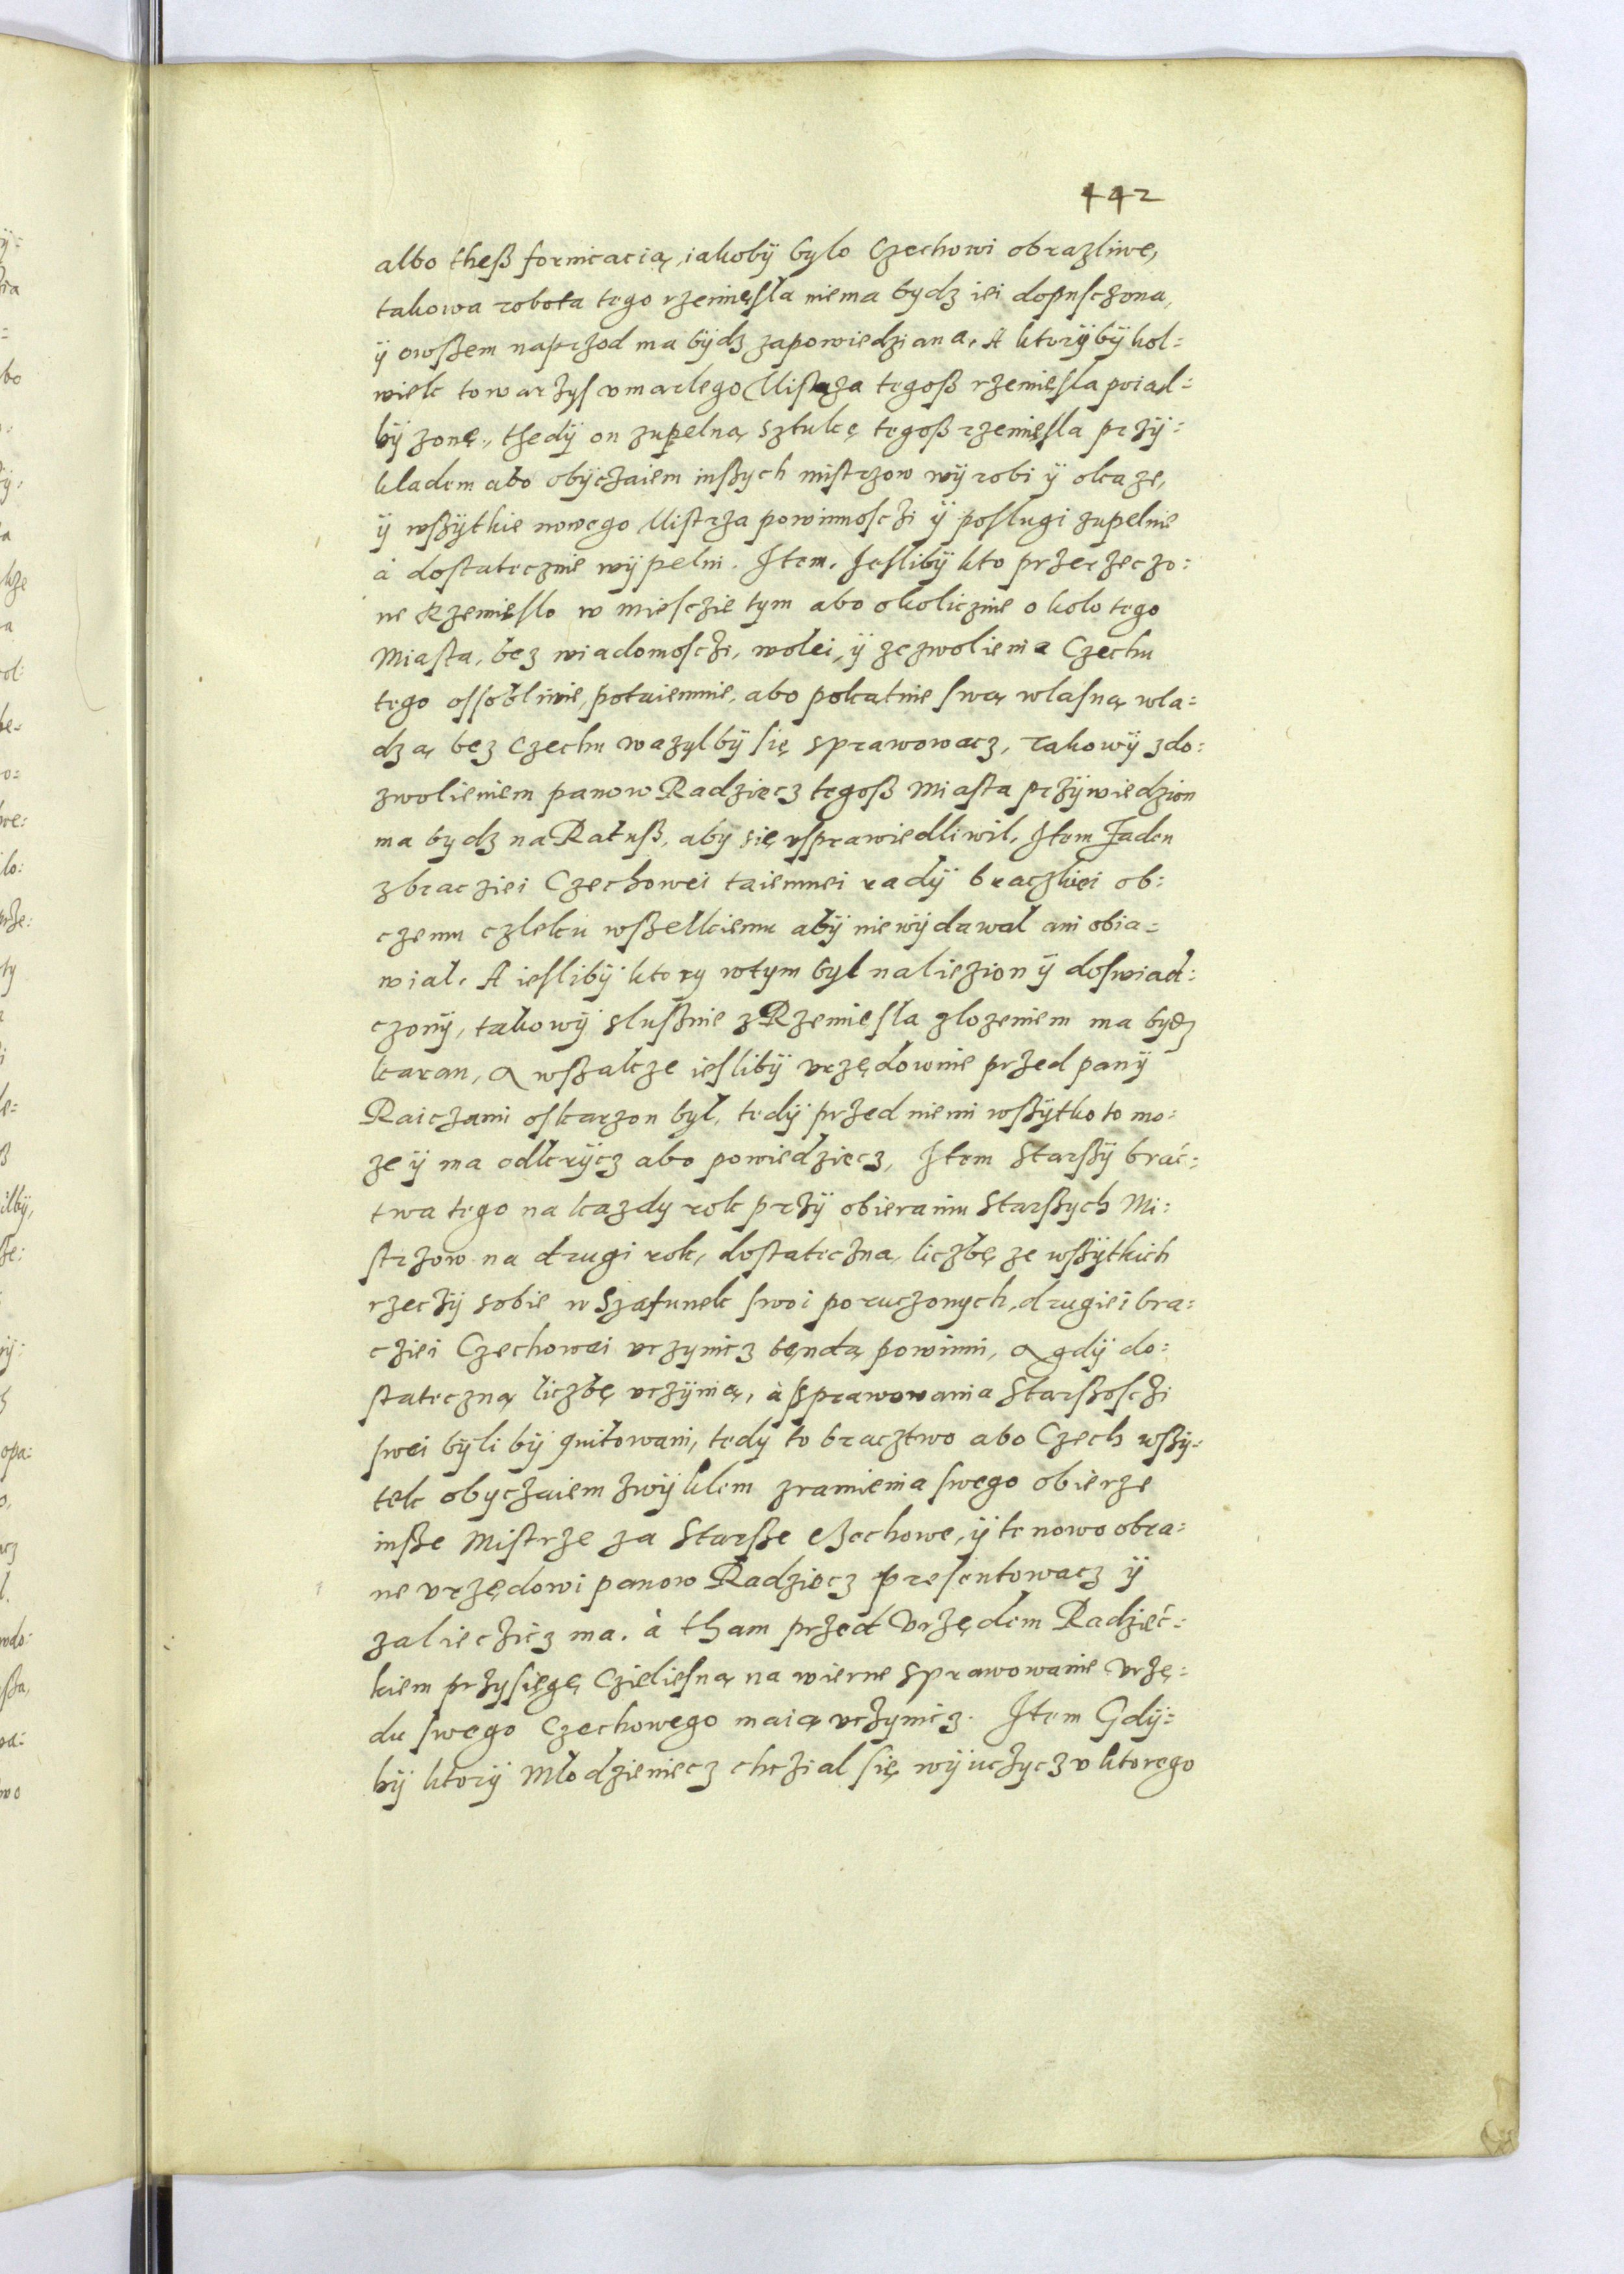 442
albo theß fornicacią, iakobÿ bylo Czechowi obrazliwe,
takowa robota tego rzemięsła niema bydz iei dopusczona,
ÿ owßem naprzod ma bÿdz zapowiedziana. A ktorÿ bÿ kol=
wiek towarzÿs vmarlego Mistrza tegoß rzemięsla poial=
bÿ zonę, thedÿ on zupelną sztukę tegoß rzemięsla przÿ=
kladem abo obÿczaiem inßych mistrzow wÿrobi ÿ okaze,
ÿ wßÿtkie nowego Mistrza powinnosczi ÿ poslugi zupelnie
à dostatecznie wÿpelni. Item. Jesliby kto przerzeczo=
ne Rzemięslo w miesczie tym abo okolicznie okolo tego
Miasta, bez wiadomosczi, wolei, ÿ zezwolienia Czechu
tego ossobliwie, potaiemnie, abo pokatnie swą wlasną wla=
dzą bez Czechu wazylbÿ się sprawowacz, Takowÿ zdo=
zwolieniem panow Radziecz tegoß Miasta przÿwiedzion
ma bydz na Ratuß, aby się vsprawiedliwil. Item Jaden
zbracziei Czechowei taiemnei radÿ braczkiei ob=
czemu czleku wßelkiemu abÿ niewÿdawal ani obia=
wial. A ieslibÿ ktory wtym byl nalieziony doswiad=
czonÿ, takowÿ slußnie z Rzemięsla zlozeniem ma bydz
karan, A wßakze ieslibÿ vrzędownie przed panÿ
Raiczami oskarzon byl, tedÿ przed niemi wßÿtko to mo=
ze ÿ ma odkrÿcz abo powiedziecz, Item Starßÿ brać=
twa tego na kazdy rok przÿ obieraniu Starßych Mi=
strzow na drugi rok, dostateczną liczbę ze wßÿtkich
rzeczÿ sobie w Szafunek swoi poruczonych, drugiei bra=
cziei Czechowei vczynicz bęndą powinni, A gdÿ do=
stateczną liczbę vczÿnią, à ßprawowania Starßosczi
swei bÿli bÿ quitowani, tedÿ to bracztwo abo Czech wßÿ=
tek obyczaiem zwÿklem zramienia swego obierze
inße Mistrze za Starße czechowe, ÿ te nowo obra=
ne vrzędowi panow Radziecz presentowacz ÿ
zaliecziċz ma. à tham przed Vrzędem Radzieć=
kiem przysięgę Czieliesną na wierne sprawowanie Vrzę=
du swego Czechowego maią vczynicz. Item Gdÿ=
bÿ ktorÿ Młodzieniecz chczial się wÿuczycz v ktorego